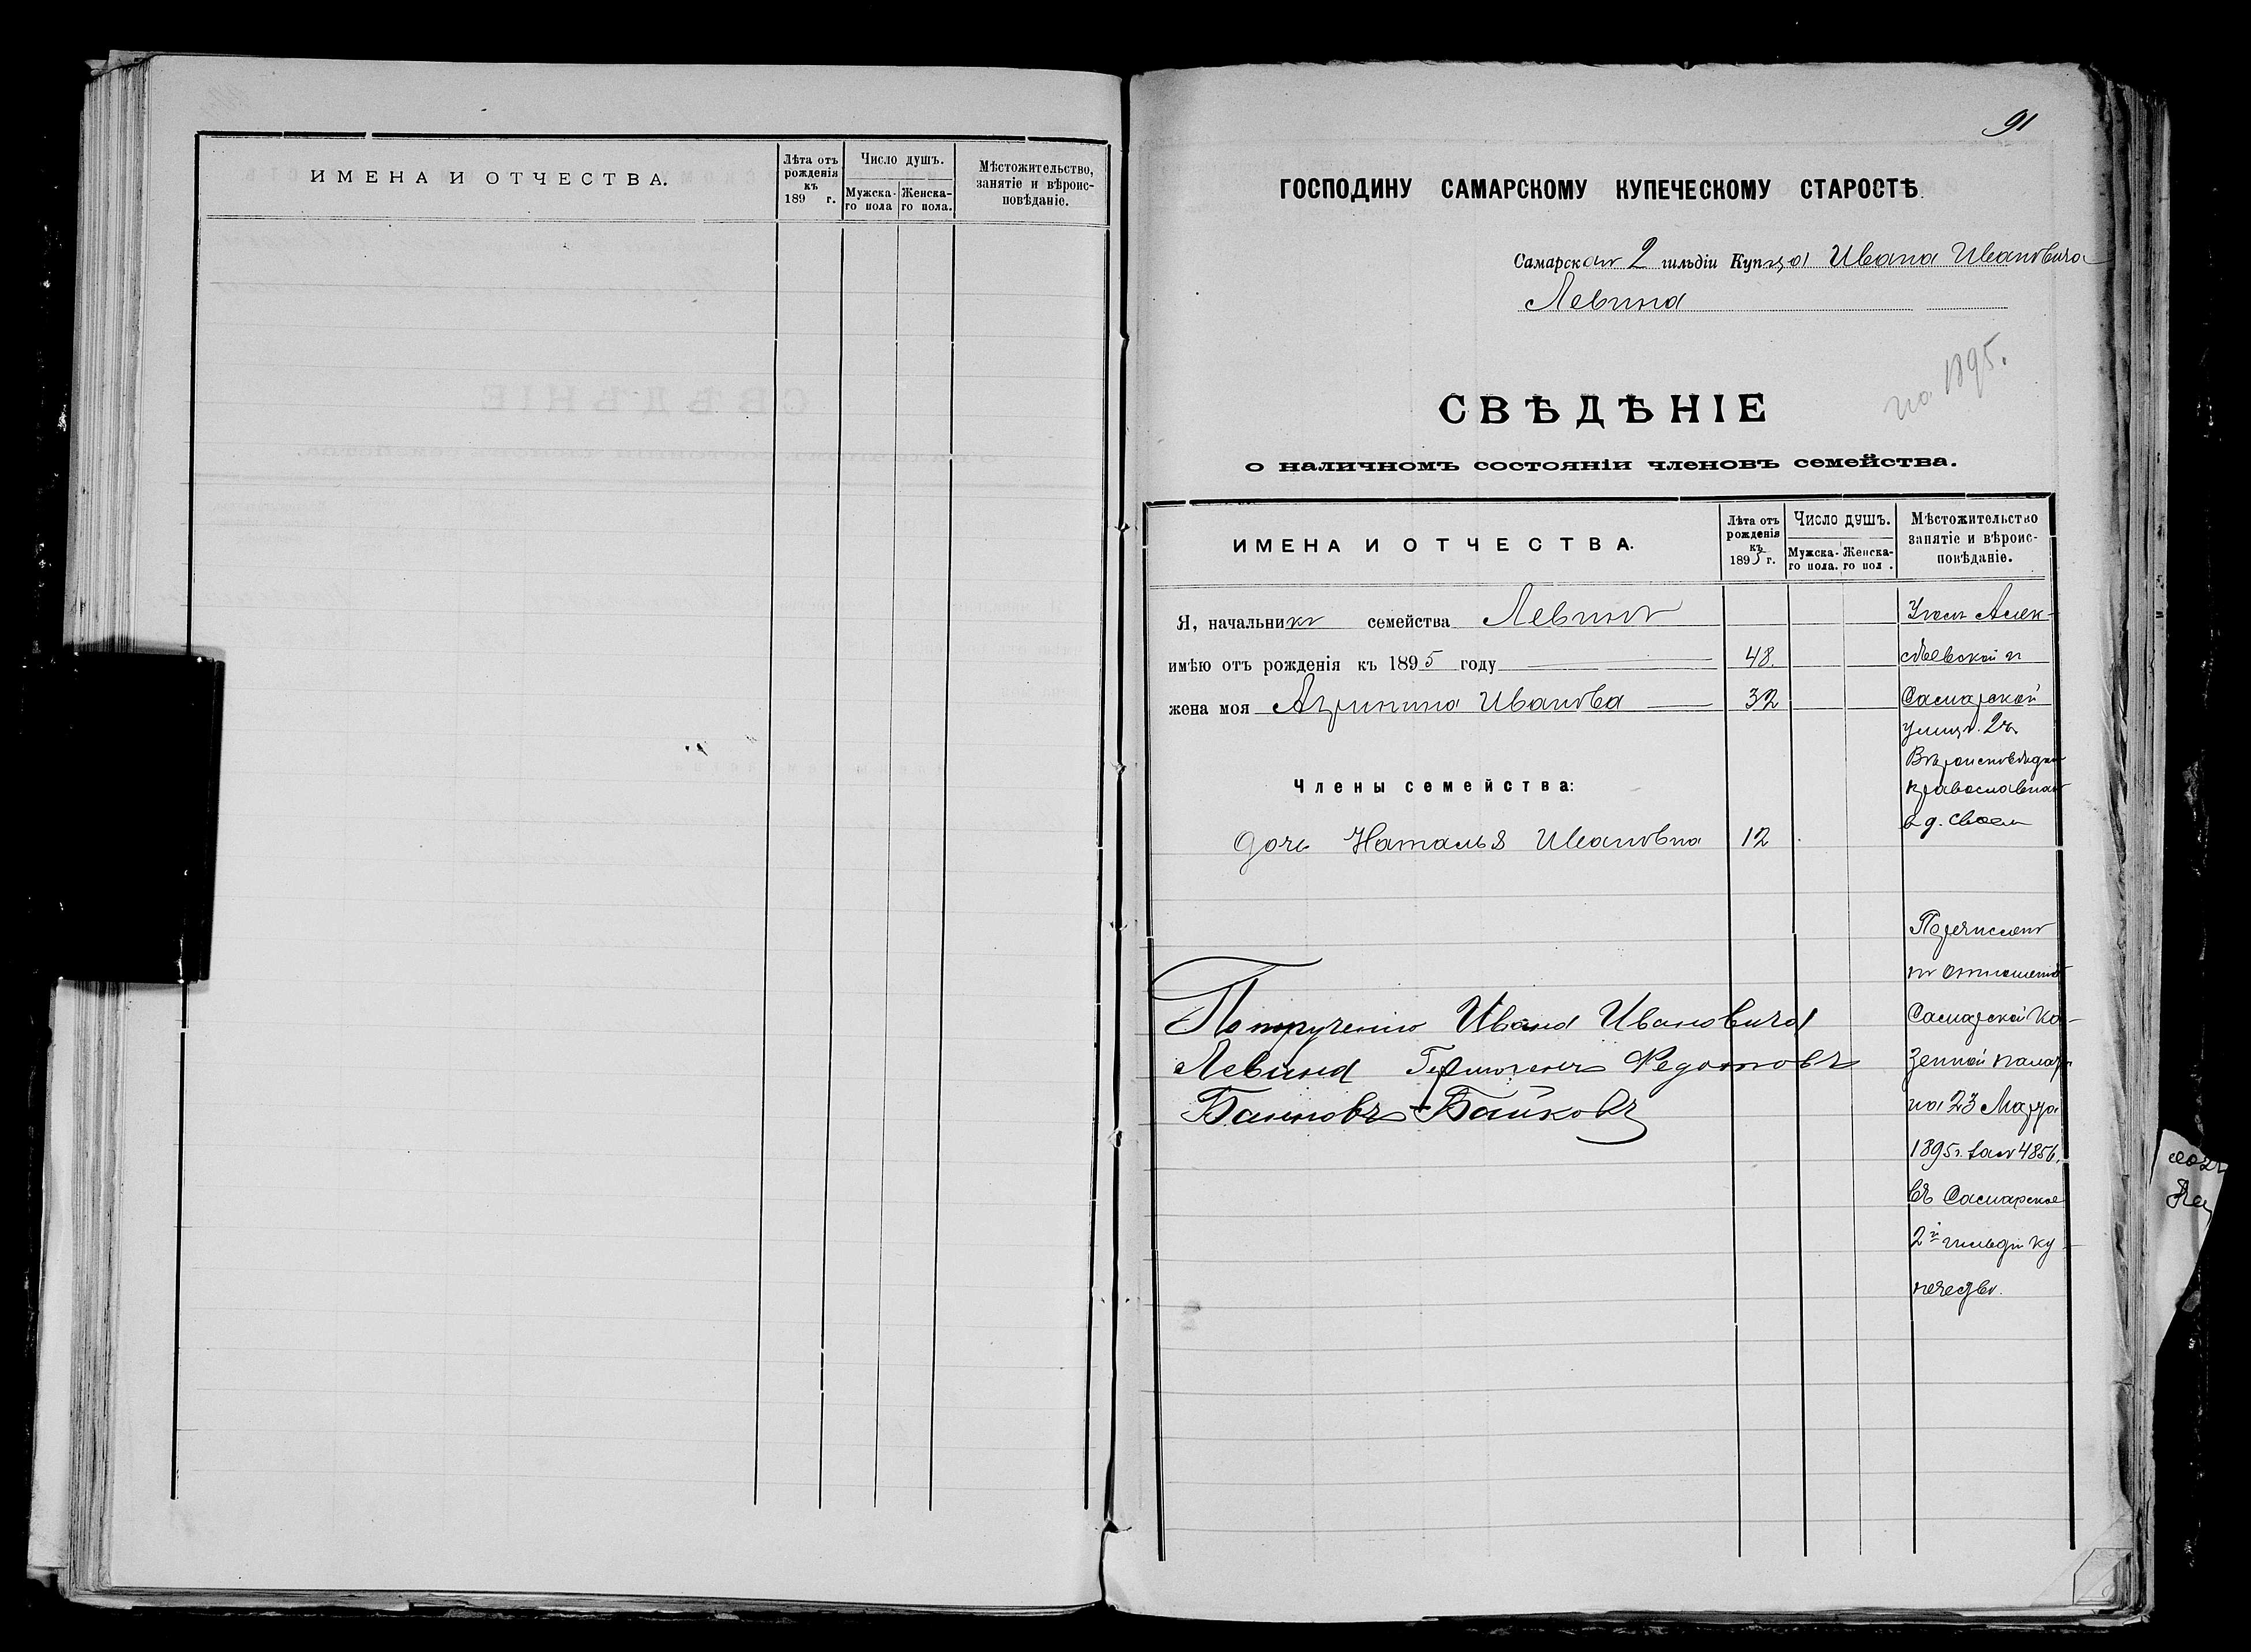 ИМЕНА И ОТЧЕСТВА.
Лѣта отъ рожденія къ 189 г.
Число душъ.
Мужска-го пола
Женска-го пола.
Мѣстожительство, занятіе и вѣроис-повѣданіе.
91
ГОСПОДИНУ САМАРСКОМУ КУПЕЧЕСКОМУ СТАРОСТѢ.
Самарскаго 2 гильдіи Купца Ивана Ивановича
Левина
на 1895.
СВѢДѢНІЕ
о наличномъ состояніи членовъ семейства.
ИМЕНА И ОТЧЕСТВА.
Лѣта отъ рожденія къ 1895 г.
Число душъ.
Мужска-го пола.
Женска-го пол .
Мѣстожительство занятіе и вѣроис-повѣданіе.
Я, начальникъ семейства Левинъ
имѣю отъ рожденія къ 1895 году 48.
жена моя Иванова 32
Члены семейства:
дочь Наталья Ивановна 12
Уголъ Алек-
сѣевской и
Самарской
улицъ. 2ч.
Вѣроисповѣдан
православнаго
в д. своем
Перечислен
по отношенію
Самарской Ка-
зенной палаты
на 23 Марта
1895 г. за № 4856.
въ Самарское
2й гильдіи ку-
печество.
По порученію Ивана Ивановича
Левина Федотовъ
Байковъ